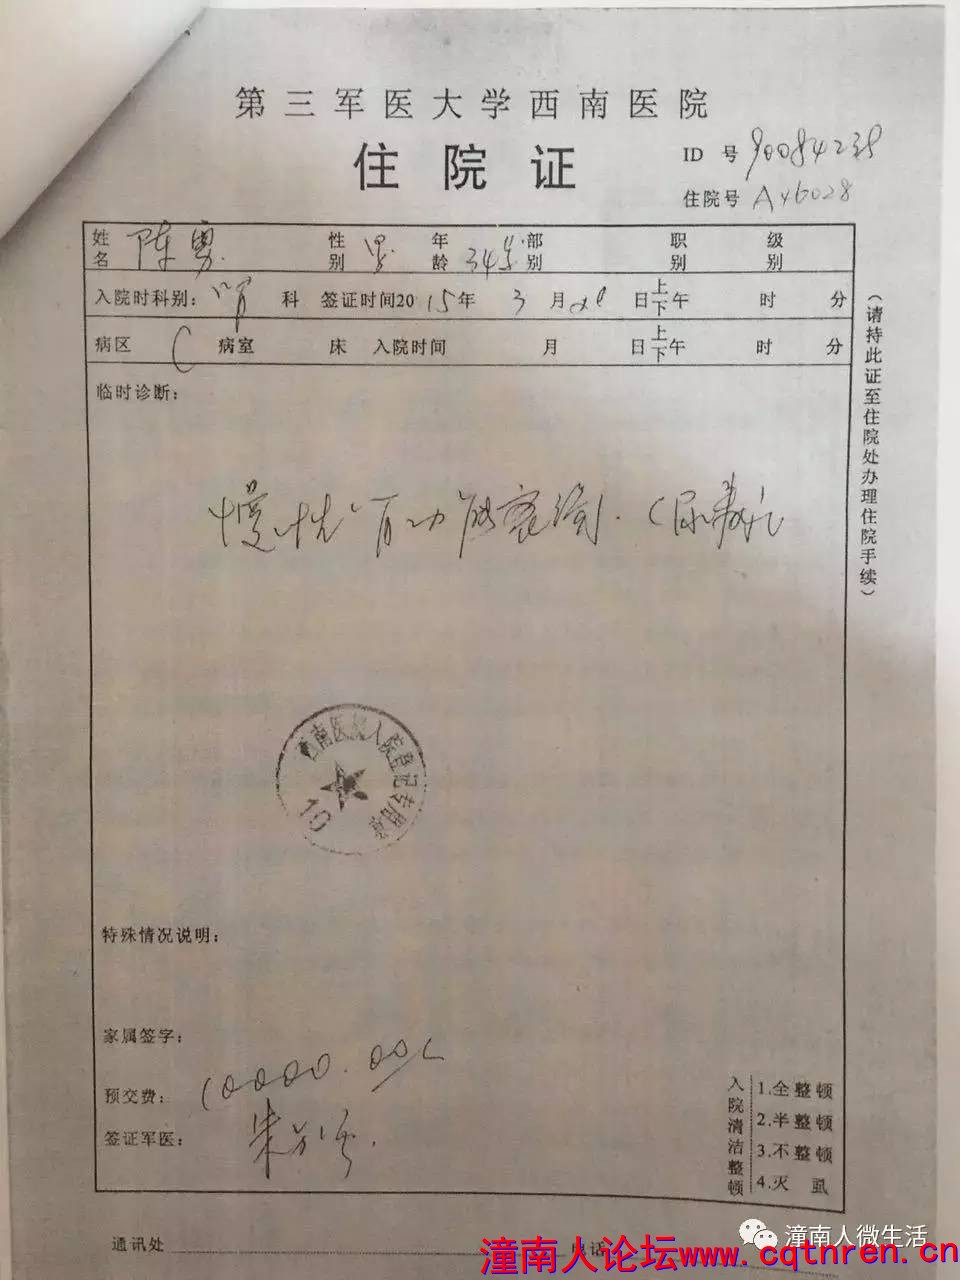 第三军医大学西南医院
住院证
ID 号 90084238
住院号 A46028
姓名 陈勇 性别 男 年龄 34岁 部别 职别 级别
入院时科别: 肾 科 签证时间2015年 3 月 日上下午 时 分
病区 C 病室 床 入院时间 月 日上下午 时 分
临时诊断:
慢性肾功能衰竭.(尿毒症
西南医院入院登记专用章
10
特殊情况说明:
家属签字:
预交费: 10000.00
签证军医: 朱
入院清洁整顿
1.全整顿
2.半整顿
3.不整顿
4.灭虱
(请持此证至住院处办理住院手续)
通讯处 电话
潼南人微生活
潼南人论坛www.cqtnren.cn